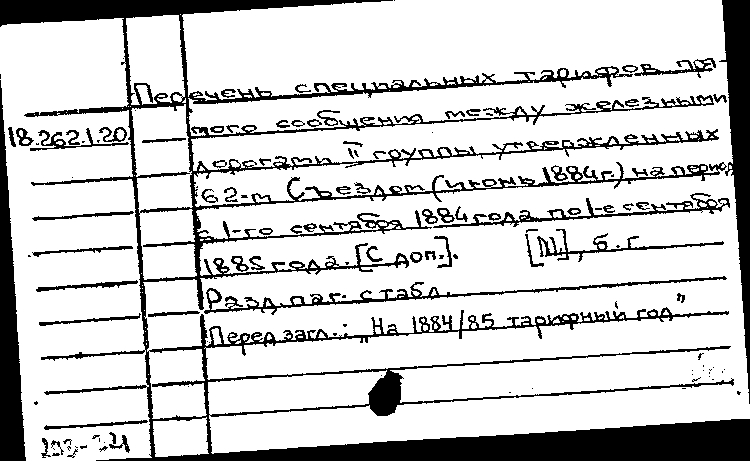 Перечень специальных тарифов пря-
18.262.1.20
мого сообщения между железными
дорогами II группы, утвержденных
62-м Съездом (июнь 1884 г.), на период
с 1-го сентября 1884 года по 1-е сентября
1885 года. [С доп.]. [М.], б. г.
Разд. паг. с табл.
Перед загл.: „На 1884/85 тарифный год"